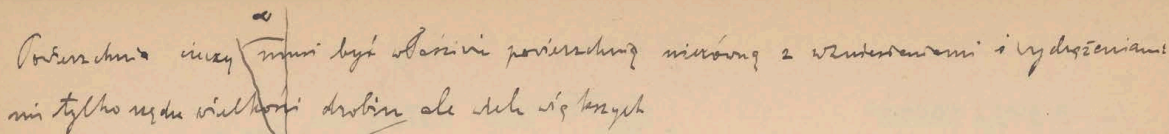 Powierzchnia cieczy musi być właściwie powierzchnią nierówną z wzniesieniami i wydrążeniami
nie tylko rzędu wielkości drobin ale wiele większych